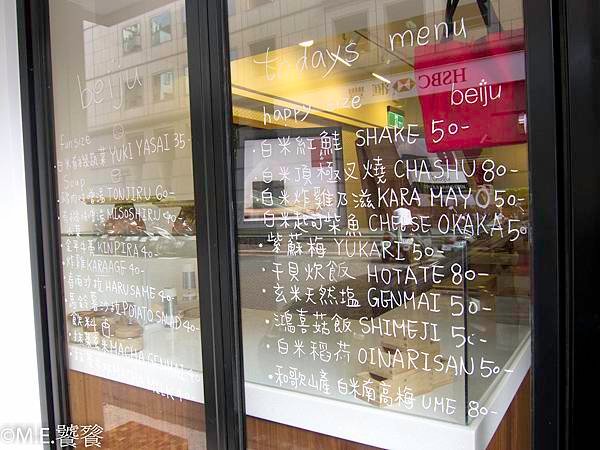 beiju
fun size
YUKI YASAI 35-
Soup
TONJIRU 60-
MISOSHIRU 40-
KINPIRA 40-
炸雞 KARAAGE 40-
HARUSAME 40-
沙拉 POTATO SALAD 40-
飲料
MACHA GENMAI 40
todays menu
HSBC
beiju
happy size
·白米紅鮭 SHAKE 50-
·白米頂極叉燒 CHASHU 80-
·白米炸雞乃滋 KARA MAYO 50-
·白米起司柴魚 CHEESE OKAKA 50
·紫蘇梅 YUKARI 50-
·干貝炊飯 HOTATE 80-
·玄米天然塩 GENMAI 50-
·鴻喜菇飯 SHIMEJI 50-
·白米稻荷 OINARISAN 50-
·和歌山產白米南高梅 UME 80-
©M.E.饕餮